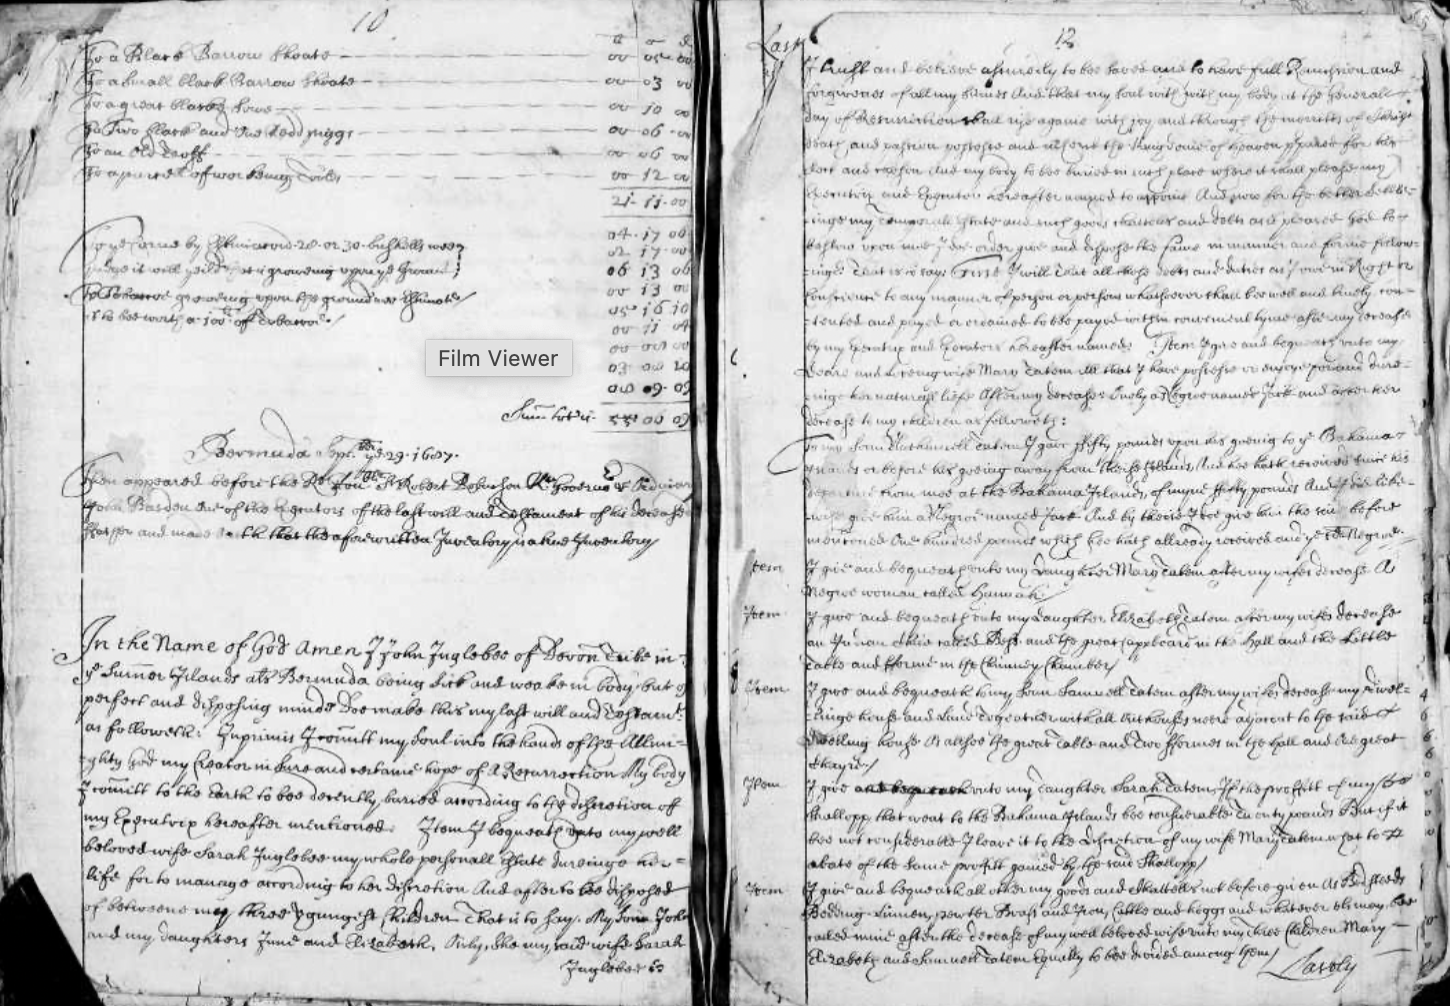 10
li s d
To a Black Barrow Shoate 00 05 00
To a Small black Barrow Shoate 00 03 00
To a great black Sowe 00 10 00
To Two black and two Redd piggs 00 06 00
To an old 00 06 00
To a parcel of working Tooles 00 12 00
21 11 00
04 17 06
02 17 00
To ye Corne by Estimacion 20 or 30 bushells wee
Judge it will yeild that is growing upon ye Ground
06 13 06
00 13 00
To Tobacco growing upon the ground wee Estimate
05 16 10
is to bee worth a 100 of Tobaccoe
00 11 04
03 00 10
00 09 09
Summ totall is 55 00 09
Film Viewer
Bermuda Sept. ye 29 1687
Then appeared before the Robert Robinson
John Basden one of the Executors of the last will and Testament of his deceased
ffather and made oath that the aforewritten Inventory is a true Inventory
In the Name of God Amen I John Inglebee of Devon Tribe in
ye Summer Islands als Bermuda being Sick and weake in body but of
perfect and disposing minde doe make this my last will and Testamt.
as followeth: Inprimis I comitt my Soul into the hands of the Allmi=
=ghty God my Creator in Sure and certaine hope of a Resurrection My body
I comitt to the Earth to bee decently buried according to the discretion of
my Executrix hereafter mentioned. Item I bequeath unto my well
beloved wife Sarah Inglebee my whole personall Estate dureinge her
life for to manage according to her discretion And after to bee disposed
of betweene my three youngest Children That is to say. My Sonn John
and my daughters Jane and Elizabeth, Only, She my said wife Sarah
Inglebee is
12
Lastly
I trust and beleive assuredly to bee saved and to have full Remission and
forgivenes of all my Sinnes And that my Soul with my body at the Generall
day of Resurrection shall rise againe with joy and through the merritts of Christs
death and passion possesse and inherit the Kingdome of heaven prepared for his
Elect and chosen And my body to bee buried in such place where it shall please my
Executrix and Executors hereafter named to appoint And now for the better settle=
=inge my temporall Estate and such goods chattells and debts as it pleased God to
bestow upon mee I doe order give and dispose the same in manner and forme follow=
=inge That is to say: First I will that all those debts and duties as I owe in Right or
Conscience to any manner of person or persons whatsoever shall bee well and truely con=
=tented and payed or ordained to bee payed within convenient tyme after my decease
by my Executrix and Executors hereafter named: Item I give and bequeath unto my
Deare and Loving wife Mary Tatem all that I have possesse or enjoye dure=
=inge her naturall life After my decease Onely a Negroe named Jack and after her
decease to my children as followeth:
To my Sonn Nathaniell Tatem I gave ffifty pounds upon his goeing to ye Bahama
Islands or before his goeing away from these Islands And hee hath received since his
departure from mee at the Bahama Islands, of myne ffifty pounds And I did like=
=wise give him a Negroe named Jack And by these I doe give him the said before
mentioned One hundred pounds which hee hath allready received and ye sd Negroe.
Item I give and bequeath unto my daughter Mary Tatem after my wifes decease A
Negroe woman called Hannah
Item I give and bequeath unto my daughter Elizabeth Tatem after my wifes decease
an Indian called Bess and the great in the Hall and the Little
Table and fforme in the Chimney Chamber
Item I give and bequeath to my Sonn Samuell Tatem after my wifes decease my dwel=
=linge house and Land together with all outhouses neere adjacent to the said
dwelling house As allsoe the great Table and Two fformes in the Hall and the great
Chayre
Item I give and bequeath unto my daughter Sarah Tatem If the proffitt of
Shallopp that went to the Bahama Islands bee considerable Twenty pounds But if it
bee not considerable I leave it to the discretion of my wife Mary Tatem what to
abate of the Same proffitt gained by the said Shallopp
Item I give and bequeath all other my goods and Chattells not before given As Bedsteeds
Bedding Linnen, pewter Brass and Iron, Cattle and hoggs and whatever els may bee
called mine after the decease of my well beloved wife unto my three Children Mary
Elizabeth and Samuell Tatem Equally to bee divided among them
Lastly